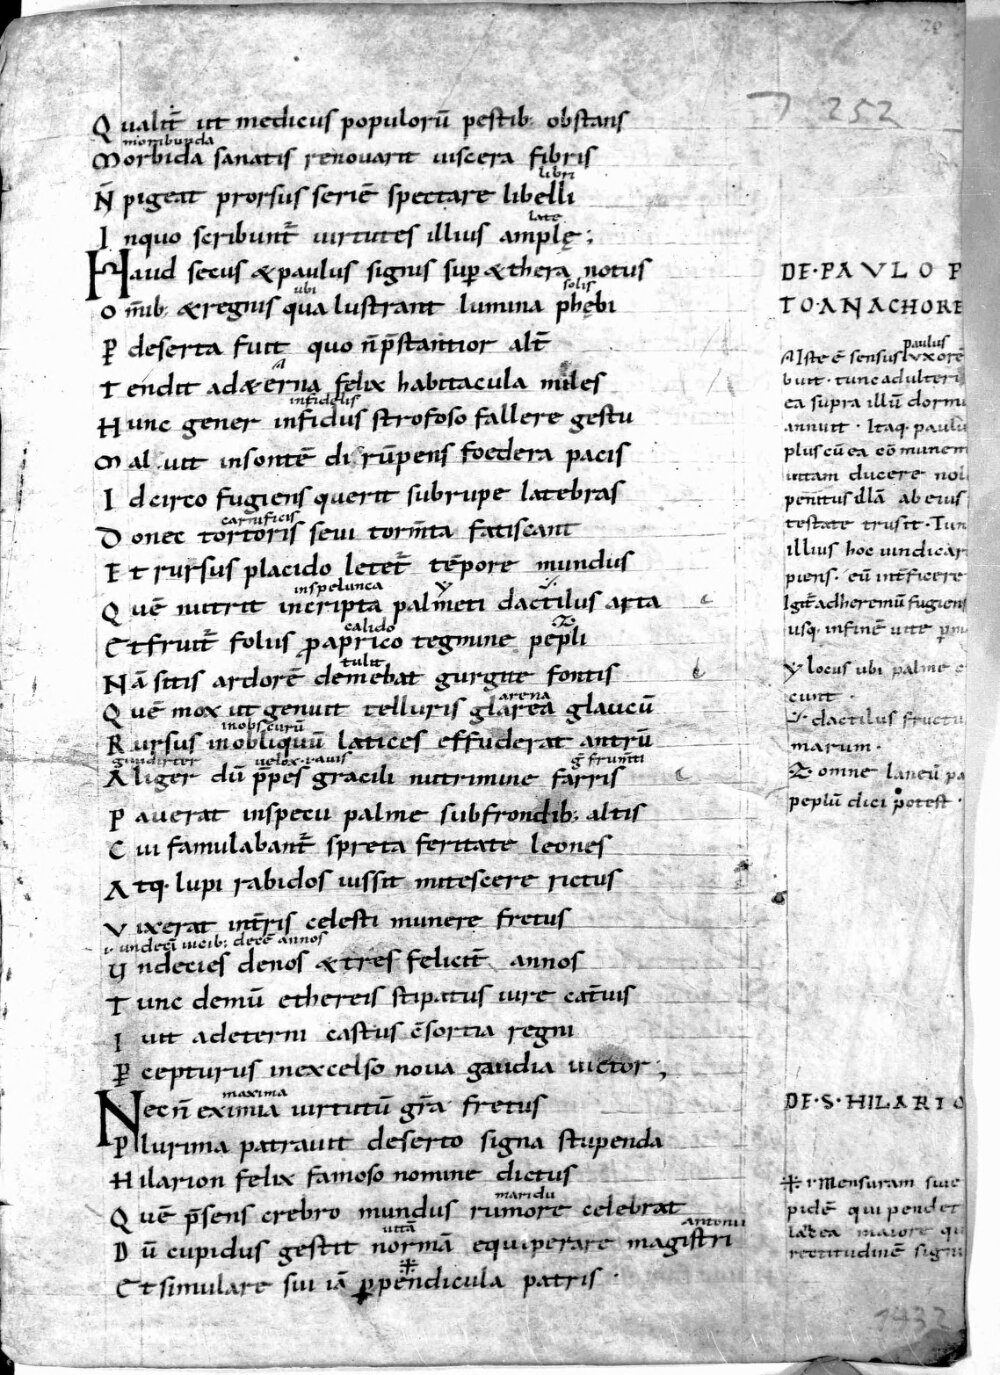 252
Qualit̄ ut medicus populorū pestib; obstans
moribunda
Morbida sanatis renovarit viscera fibris
libri
N̄ pigeat prorsus seriē spectare libelli
late
Inquo scribunt̄ virtutes illius amplę;
Haud secus & paulus signis sup̄ &thera notus
ubi solis
Om̄ib; & regnis qua lustrant lumina phębi
P̄ deserta fuit quo n̄ p̄stantior alt̄
Tendit ad&erna felix habitacula miles
infidelis
Hunc gener infidus strofoso fallere gestu
Maluit insontē dirūpens foedera pacis
Idcirco fugiens querit subrupe latebras
carnificis
Donec tortoris sevi torm̄ta fatiscant
Et rursus placido let&̄ tēpore mundus
inspelunca
Quē nutrit incripta palmeti dactilus arta
calido
Et fruit̄ folus p aprico tegmine pepli
tulit
Nā sitis ardorē demebat gurgite fontis
arena
Quē mox ut genuit telluris glarea glaucū
inobscurū
Rursus in obliquū latices effuderat antrū
velox avis g frum̄ti
Aliger dū p̄pes gracili nutrimine farris
Paverat inspecu palme subfrondib; altis
Cui famulabant̄ spreta feritate leones
Atq; lupi rabidos iussit mitescere rictus
Vixerat int̄ris celesti munere fretus
undecī vicib; decē annos
Undecies denos & tres felicit̄ annos
Tunc demū ethereis stipatus iure cat̄vis
Ivit adeterni castus c̄sortia regni
P̄cepturus inexcelso nova gaudia victor;
maxima
Nec n̄ eximia virtutū gr̄a fretus
Plurima patravit deserto signa stupenda
Hilarion felix famoso nomine dictus
Quē p̄sens crebro mundus rumore celebrat
vitā antonii
Dū cupidus gestit normā equiperare magistri
Et simulare sui iā p̄pendicula patris.
DE·PAVLO P
TO·ANACHORE
paulus
Iste ē sensus uxorē
buit. tunc adulteri
ea supra illū dormi
annuit. Itaq; paulu
plus cū ea cōmunem
vitam ducere nol
penitus illā ab eius
testate trusit. Tun
illius hoc vindicar
piens. eū int̄ficere
Igit̄ adheremū fugiens
usq; infinē vite p̄m
y locus ubi palme c
cunt.
dactilus fructu
marum.
omne laneū pa
peplū dici potest.
DE·S·HILARIO
mensuram sive
pidē qui pendet
latea maiore qu
rectitudinē signi
1432